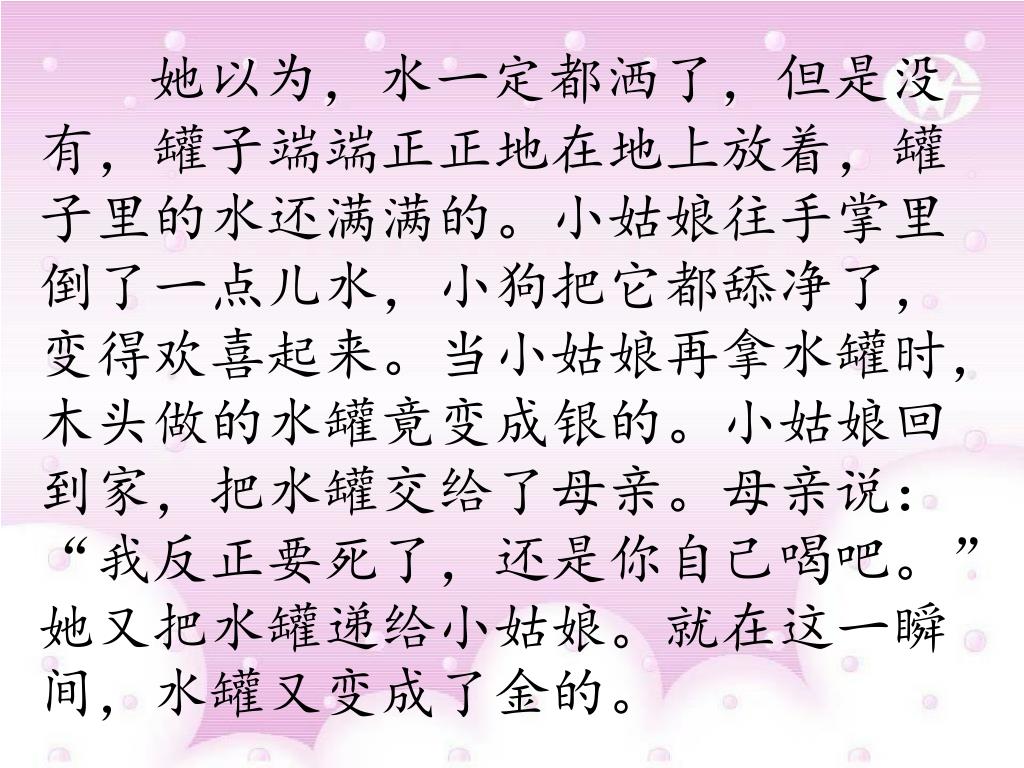 她以为，水一定都洒了，但是没
有，罐子端端正正地在地上放着，罐
子里的水还满满的。小姑娘往手掌里
倒了一点儿水，小狗把它都舔净了，
变得欢喜起来。当小姑娘再拿水罐时，
木头做的水罐竟变成银的。小姑娘回
到家，把水罐交给了母亲。母亲说：
“我反正要死了，还是你自己喝吧。”
她又把水罐递给小姑娘。就在这一瞬
间，水罐又变成了金的。